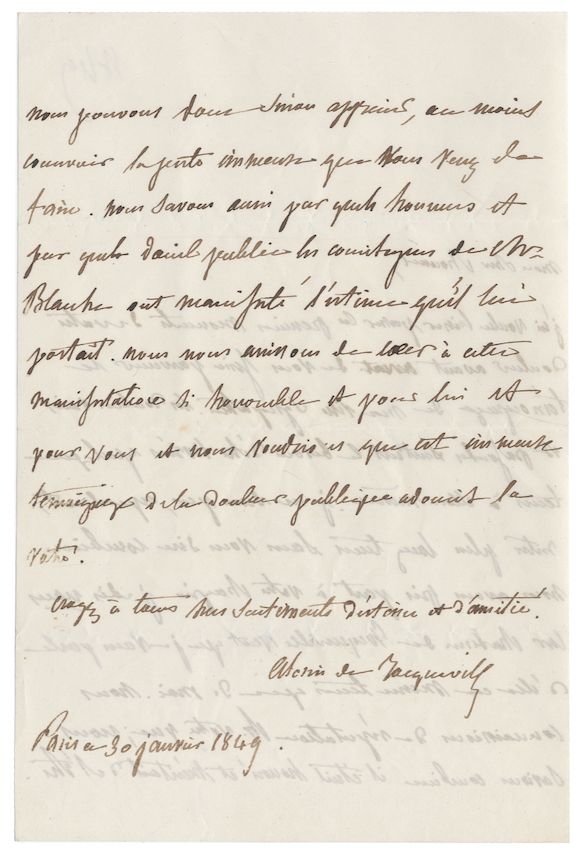 nous pouvons donc sinon apprécier, au moins
concevoir la perte immense que vous venez de
faire. nous savons aussi par quels honneurs et
par quels deuil public les concitoyens de Mr
Blanche ont manifesté l'estime qu'il lui
portait. nous nous unissons de cœur à cette
manifestation si honorable et pour lui et
pour vous et nous voudrions que cet immense
témoignage de la douleur publique adoucit la
votre.
croyez à tous mes sentiments d'estime et d'amitié.
Alexis de Tocqueville
Paris ce 30 janvier 1849.